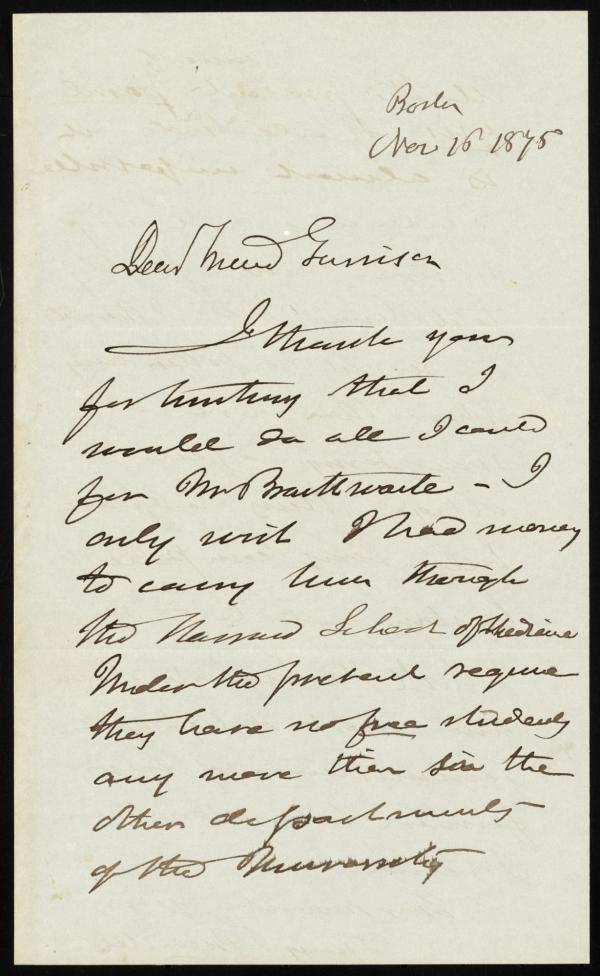 Boston
Nov 16 1875
Dear Friend Garrison
I thank you
for hinting that I
would do all I could
for Mr Braithwaite - I
only wish I had money
to carry him through
the Harvard School of Medicine
Under the present regime
they have no free students
any more than in the
other departments
of the University